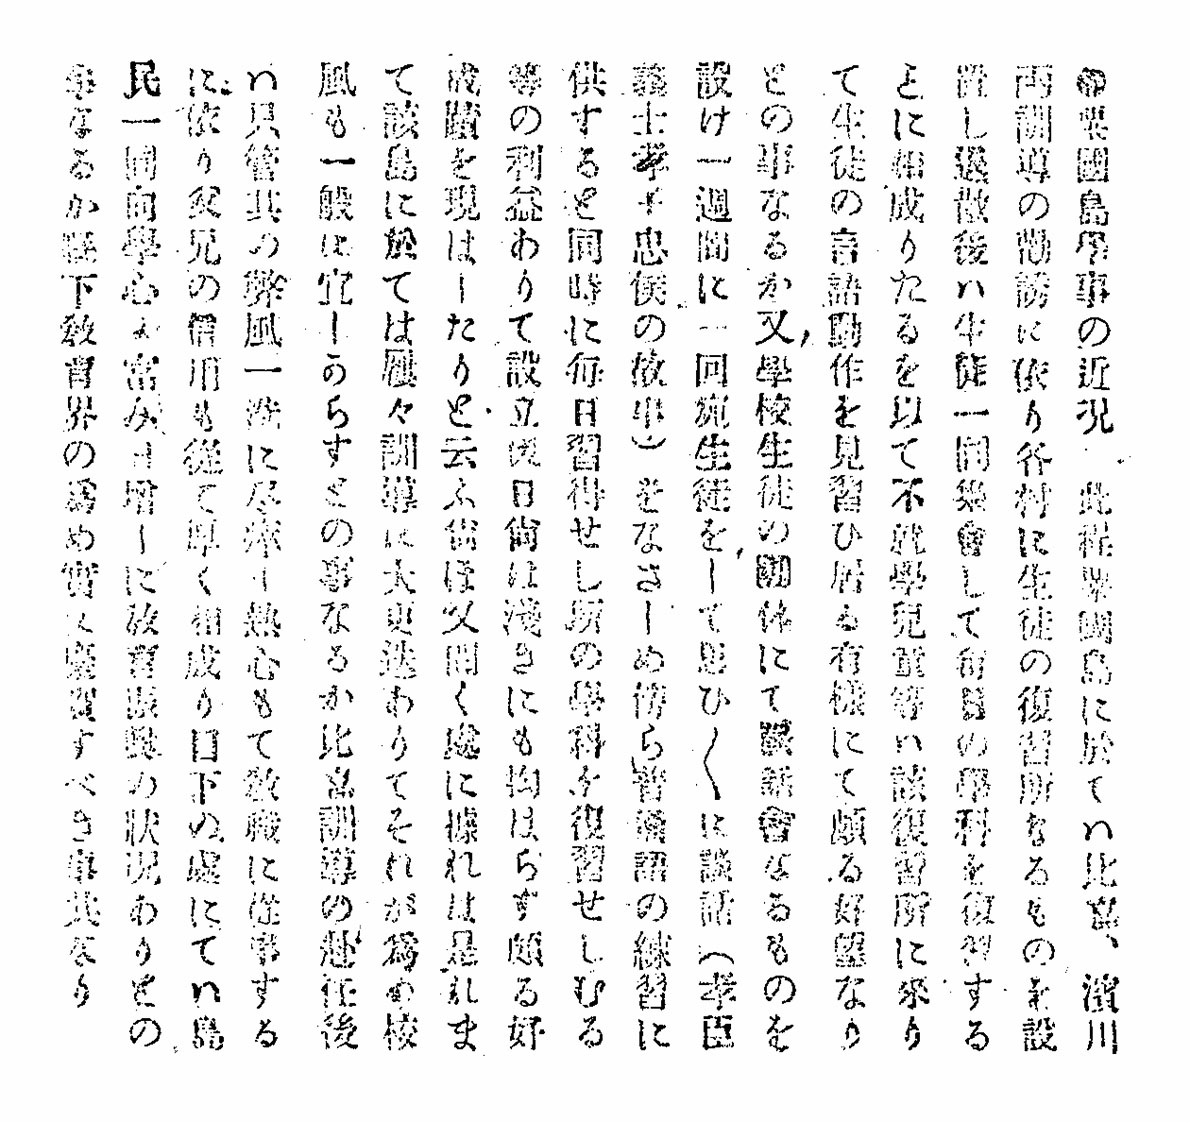 ●粟國島學事の近況　此程粟國島に於てハ比嘉、濱川
両訓導の勸誘に依り各村に生徒の復習所なるものを設
置し退散後ハ生徒一同集會して毎日の學科を復習する
とに相成りたるを以て不就學兒童等ハ該復習所に來り
て生徒の言語動作を見習ひ居る有様にて頗る好望なり
との事なるか又學校生徒の團体にて談話會なるものを
設け一週間に一回宛生徒をして思ひ〱に談話（孝臣
義士孝子忠僕の故事）をなさしめ傍ら普通語の練習に
供すると同時に毎日習得せし所の學科を復習せしむる
等の利益わりて設立以日尚は淺きにも拘はらず頗る好
成蹟を現はしたりと云ふ尚ほ又聞く處に據れは是れま
て該島に於ては屢々訓導に大更迭わりてそれが爲め校
風も一般に宜しうらすとの事なるか比嘉訓導の赴任後
ハ只管其の弊風一洗に尽瘁し熱心もて教職に從事する
に依り父兄の信用も從て厚く相成り目下の處にてハ島
民一同向學心に富み日增しに教育振興の状況わりとの
事なるか縣下敎育界の爲め實に慶賀すべき事共なり